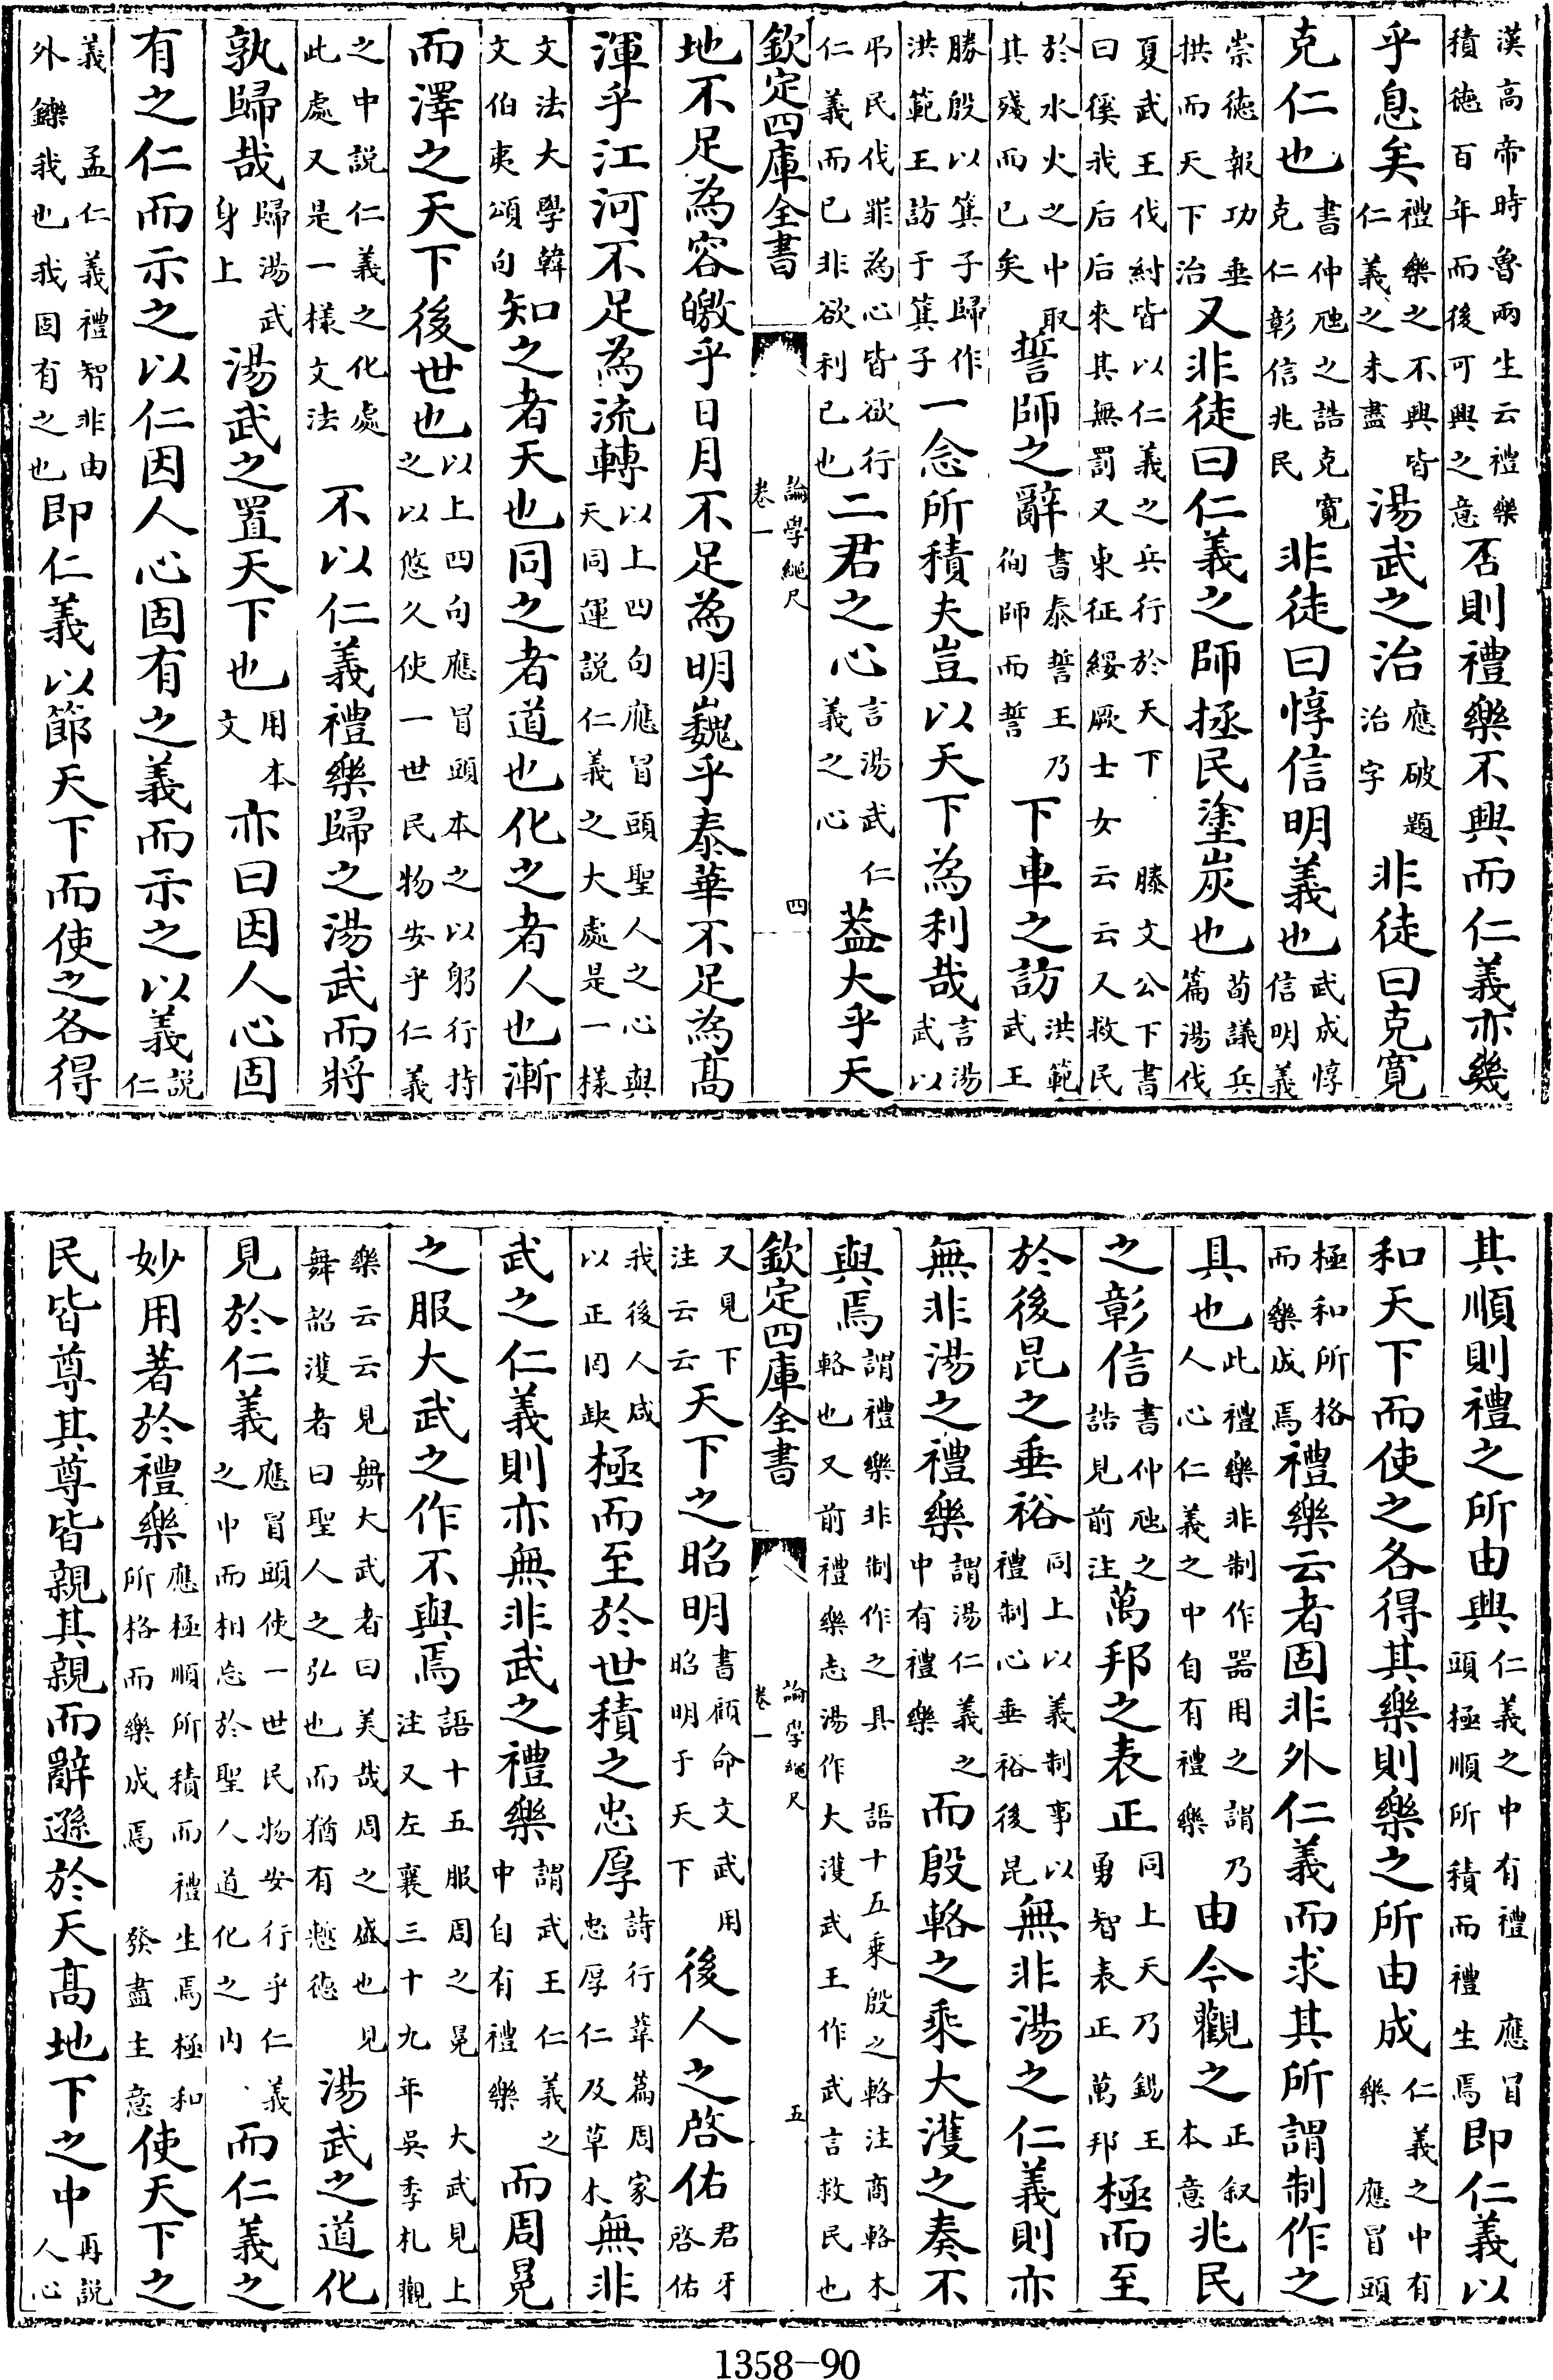 漢高帝時魯兩生云禮樂積徳百年而後可興之意否則禮樂不興而仁義亦幾
乎息矣禮樂之不興皆仁義之未盡湯武之治應破題治字非徒曰克寛
克仁也書仲虺之誥克寛克仁彰信兆民非徒曰惇信明義也武成惇信明義
崇徳報功垂拱而天下治又非徒曰仁義之師拯民塗炭也荀議兵篇湯伐
夏武王伐紂皆以仁義之兵行於天下滕文公下書曰徯我后后來其無罰又東征綏厥士女云云又救民
於水火之中取其殘而已矣誓師之辭書泰誓王乃徇師而誓下車之訪洪範武王
勝殷以箕子歸作洪範王訪于箕子一念所積夫豈以天下為利哉言湯武以
弔民伐罪為心皆欲行仁義而已非欲利已也二君之心言湯武仁義之心葢大乎天
欽定四庫全書 論學繩尺 卷一 四
地不足為容皦乎日月不足為明巍乎泰華不足為髙
渾乎江河不足為流轉以上四句應冒頭聖人之心與天同運説仁義之大處是一様
文法大學韓文伯夷頌句知之者天也同之者道也化之者人也漸
而澤之天下後世也以上四句應冒頭本之以躬行持之以悠久使一世民物安乎仁義
之中説仁義之化處此處又是一樣文法不以仁義禮樂歸之湯武而將
孰歸哉歸湯武身上湯武之置天下也用本文亦曰因人心固
有之仁而示之以仁因人心固有之義而示之以義説仁
義孟仁義禮智非由外鑠我也我固有之也即仁義以節天下而使之各得
其順則禮之所由興仁義之中有禮應冒頭極順所積而禮生焉即仁義以
和天下而使之各得其樂則樂之所由成仁義之中有樂應冒頭
極和所格而樂成焉禮樂云者固非外仁義而求其所謂制作之
具也此禮樂非制作器用之謂乃人心仁義之中自有禮樂由今觀之正叙本意兆民
之彰信書仲虺之誥見前注萬邦之表正同上天乃錫王勇智表正萬邦極而至
於後昆之垂裕同上以義制事以禮制心垂裕後昆無非湯之仁義則亦
無非湯之禮樂謂湯仁義之中有禮樂而殷輅之乘大濩之奏不
與焉謂禮樂非制作之具語十五乗殷之輅注商輅木輅也又前禮樂志湯作大濩武王作武言救民也
欽定四庫全書 論學繩尺 卷一 五
又見下注云云天下之昭明書顧命文武用昭明于天下後人之啓佑君牙啓佑
我後人咸以正罔缺極而至於世積之忠厚詩行葦篇周家忠厚仁及草木無非
武之仁義則亦無非武之禮樂謂武王仁義之中自有禮樂而周冕
之服大武之作不與焉語十五服周之冕大武見上注又左襄三十九年吳季札觀
樂云云見舞大武者曰美哉周之盛也見舞韶濩者曰聖人之弘也而猶有慙徳湯武之道化
見於仁義應冒頭使一世民物安行乎仁義之中而相忘於聖人道化之内而仁義之
妙用著於禮樂應極順所積而禮生焉極和所格而樂成焉發盡主意使天下之
民皆尊其尊皆親其親而辭遜於天髙地下之中再説人心
1358-90